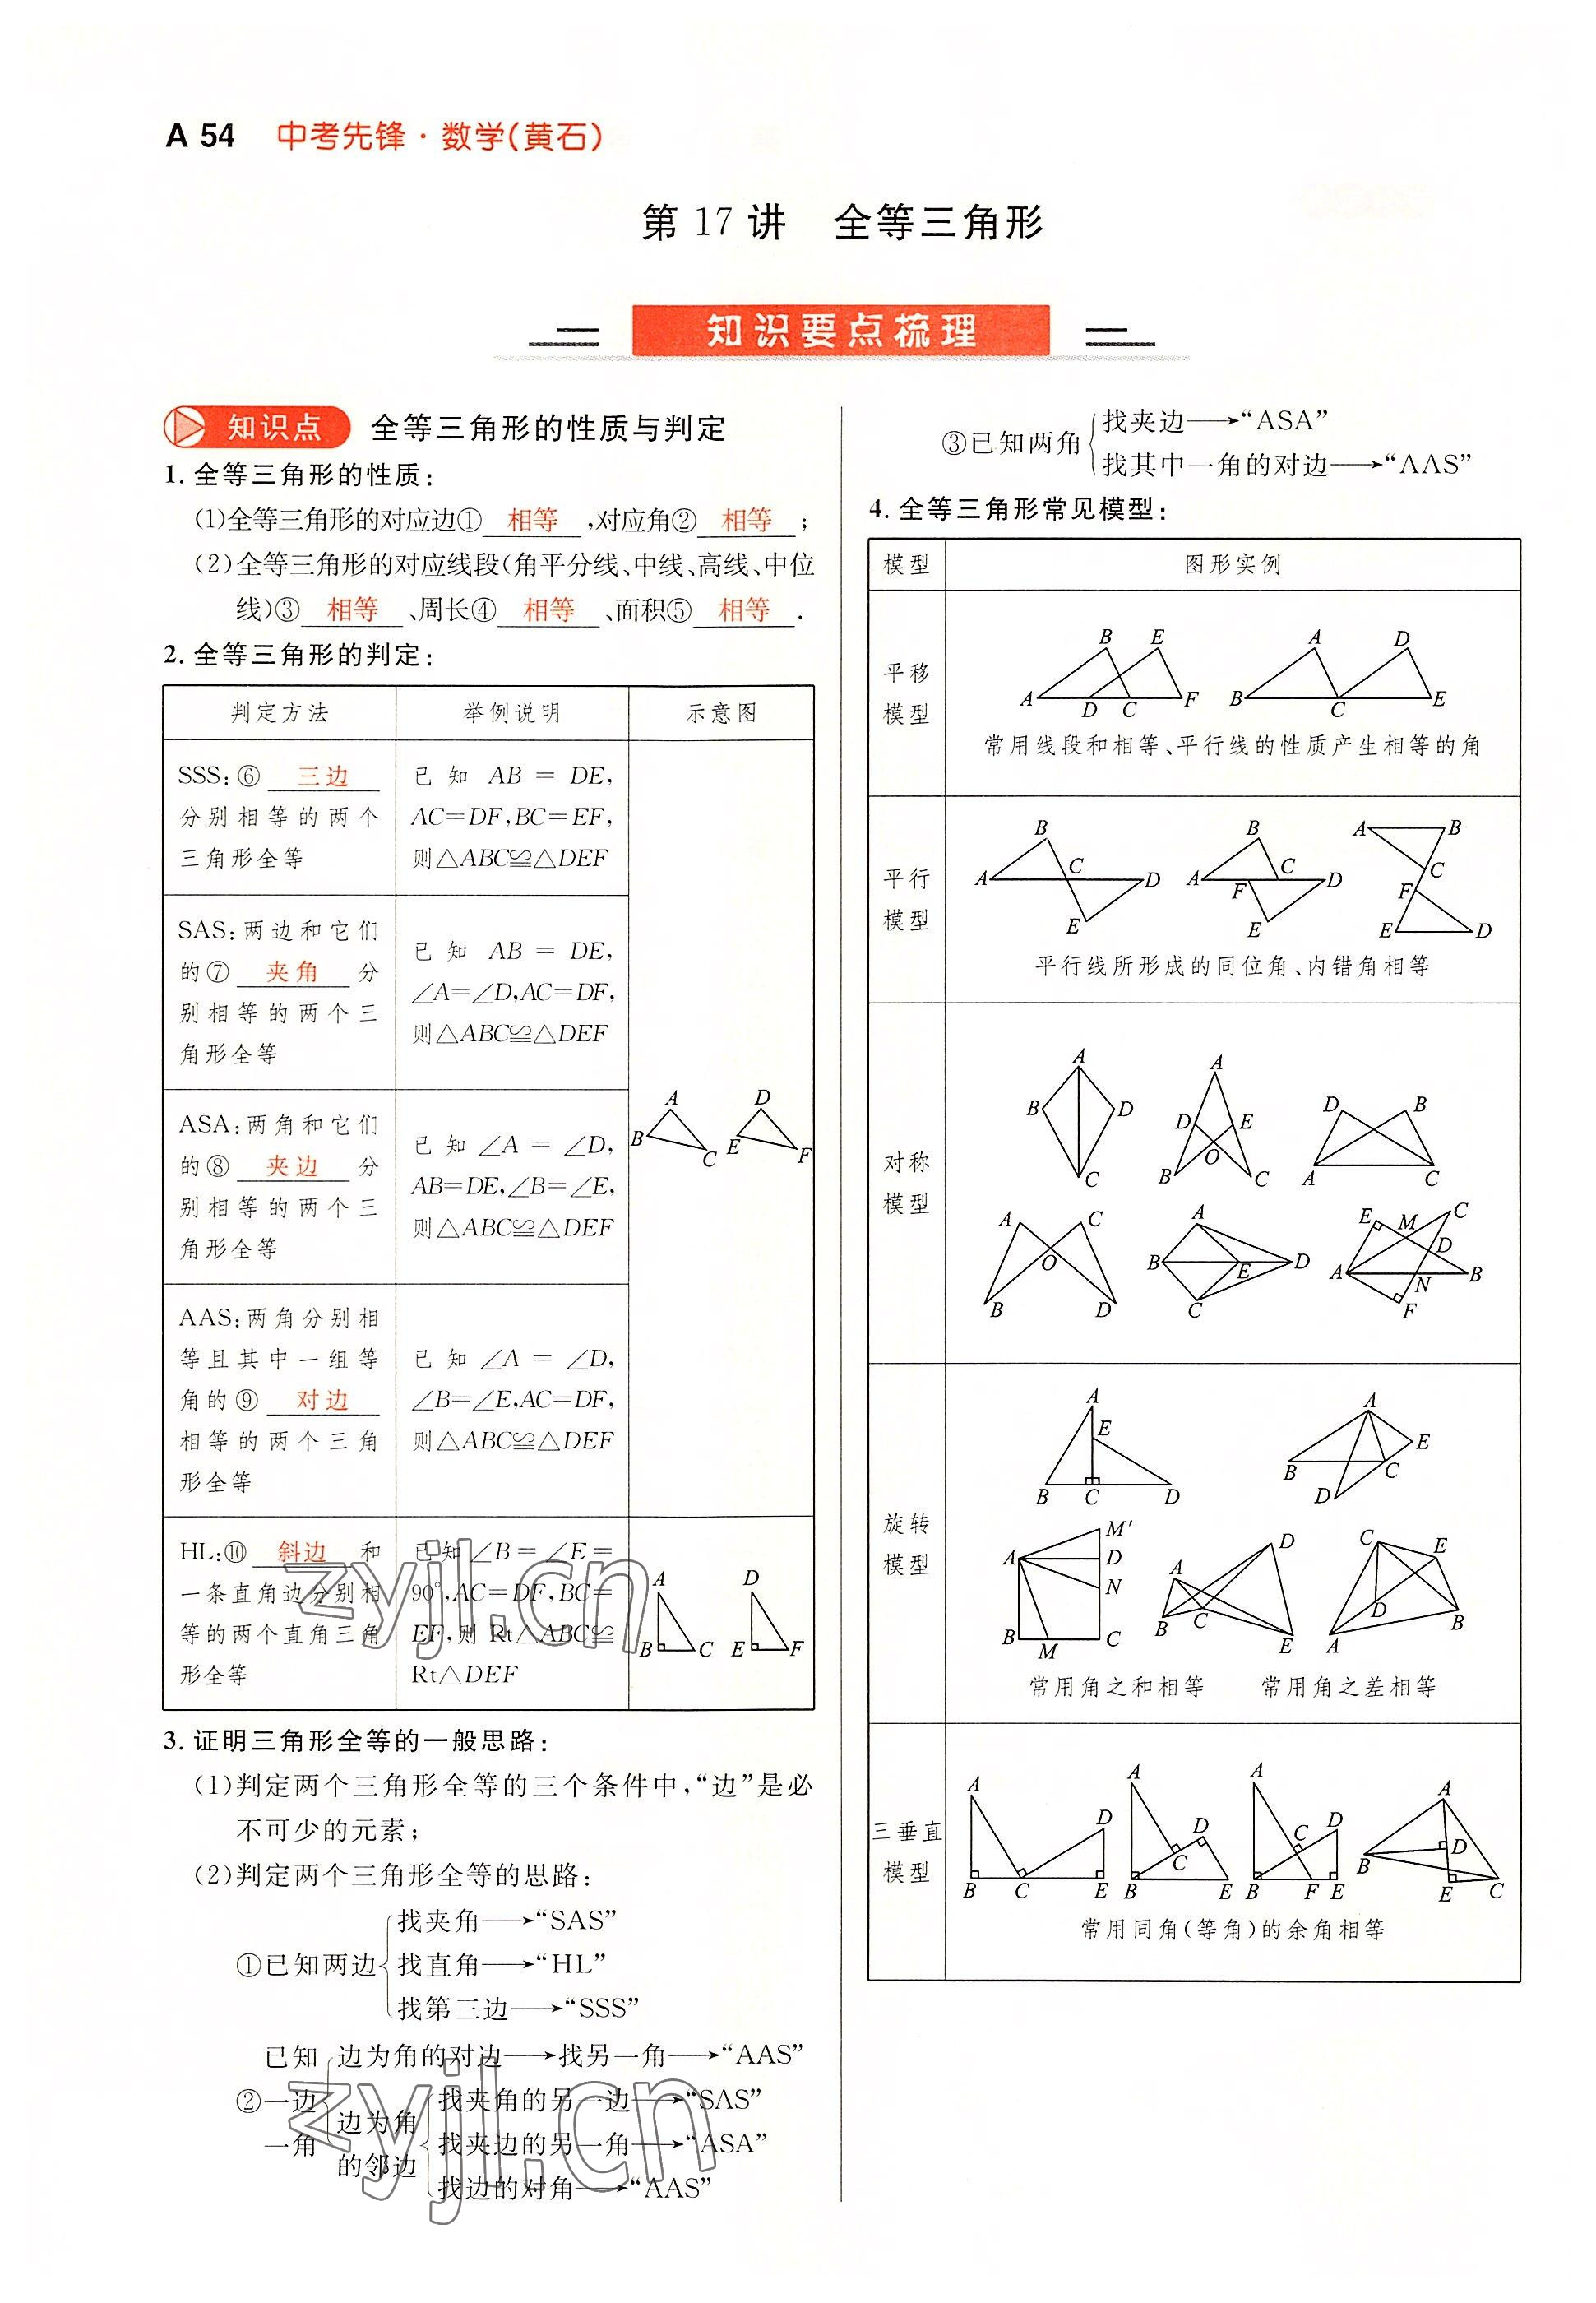 A 54 中考先锋·数学(黄石)
第 17 讲 全等三角形
知识要点梳理
知识点 全等三角形的性质与判定
1. 全等三角形的性质:
(1)全等三角形的对应边① 相等 ,对应角② 相等 ;
(2)全等三角形的对应线段(角平分线、中线、高线、中位
线)③ 相等 、周长④ 相等 、面积⑤ 相等 .
2. 全等三角形的判定:
判定方法 举例说明 示意图
SSS:⑥ 三边
分别相等的两个
三角形全等
已知 AB = DE,
AC=DF,BC=EF,
则△ABC≌△DEF
SAS:两边和它们
的⑦ 夹角 分
别相等的两个三
角形全等
已知 AB = DE,
∠A=∠D,AC=DF,
则△ABC≌△DEF
ASA:两角和它们
的⑧ 夹边 分
别相等的两个三
角形全等
已知 ∠A = ∠D,
AB=DE,∠B=∠E,
则△ABC≌△DEF
A D
B C E F
AAS:两角分别相
等且其中一组等
角的⑨ 对边
相等的两个三角
形全等
已知 ∠A = ∠D,
∠B=∠E,AC=DF,
则△ABC≌△DEF
HL:⑩ 斜边 和
一条直角边分别相
等的两个直角三角
形全等
已知∠B=∠E=
90°,AC=DF,BC=
EF,则 Rt△ABC≌
Rt△DEF
A D
B C E F
3. 证明三角形全等的一般思路:
(1)判定两个三角形全等的三个条件中,“边”是必
不可少的元素;
(2)判定两个三角形全等的思路:
①已知两边
找夹角→“SAS”
找直角→“HL”
找第三边→“SSS”
②已知一边一角
边为角的对边→找另一角→“AAS”
边为角的邻边
找夹角的另一边→“SAS”
找夹边的另一角→“ASA”
找边的对角→“AAS”
③已知两角
找夹边→“ASA”
找其中一角的对边→“AAS”
4. 全等三角形常见模型:
模型 图形实例
平移模型
B E
A D C F
A D
B C E
常用线段和相等、平行线的性质产生相等的角
平行模型
B A C D E
B A C F D E
A B C F E D
平行线所形成的同位角、内错角相等
对称模型
A B D C
A D E O B C
D B A C
A C O B D
A B E D C
E M C D A N B F
旋转模型
A E B C D
A E B C D
M′ A D N B M C
D A B C E
C E D B A
常用角之和相等 常用角之差相等
三垂直模型
A D B C E
A D C B E
A C D B F E
A D B E C
常用同角(等角)的余角相等
zyjl.cn
zyjl.cn